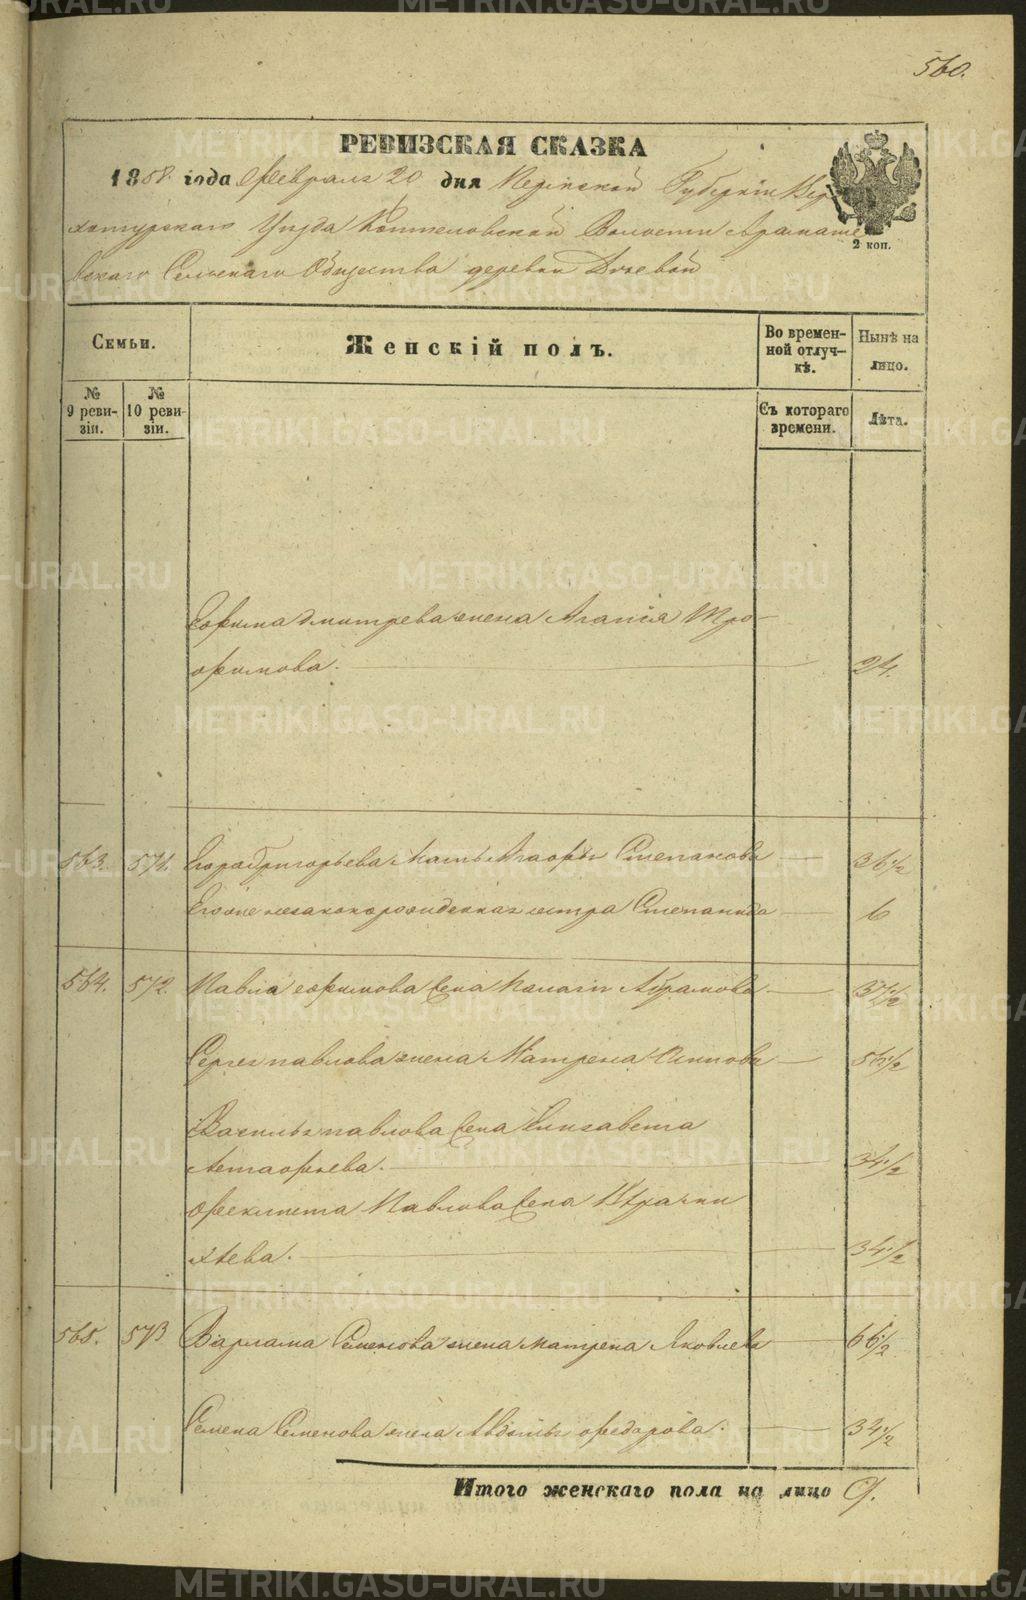 560.
РЕВИЗСКАЯ СКАЗКА
1858 года Февраля 20 дня Пермской Губернiи Вер
хотурскаго Уезда Коптеловской Волости Арамаше
вскаго Сельскаго Общества деревни
2 коп.
Семьи.
Женскiй полъ.
Во времен-
ной отлуч-
кѣ.
Нынѣ на
лицо.
№
9 реви-
зiи.
№
10 реви-
зiи.
Съ котораго
времени.
Лѣта.
Ефима Дмитрева жена Агапiя Тро-
фимова. 24.
563. 571. Егора Григорьева Мать Степанова 36 1/2
Егоже незаконорожденная сестра Степанида 6
564. 572. Павла Ефимова жена Пелагея Абрамова 37 1/2
Сергея Павлова жена Матрена Осипова 56 1/2
Василья Павлова жена Елизавета
Астафьева. 34 1/2
Феклиста Павлова жена
34 1/2
565. 573 Варлама Семенова жена Матрена Яковлева 66 1/2
Семена Семенова жена Авдотья Федорова. 32 1/2
Итого женскаго пола на лицо 9.
METRIKI.GASO-URAL.RU